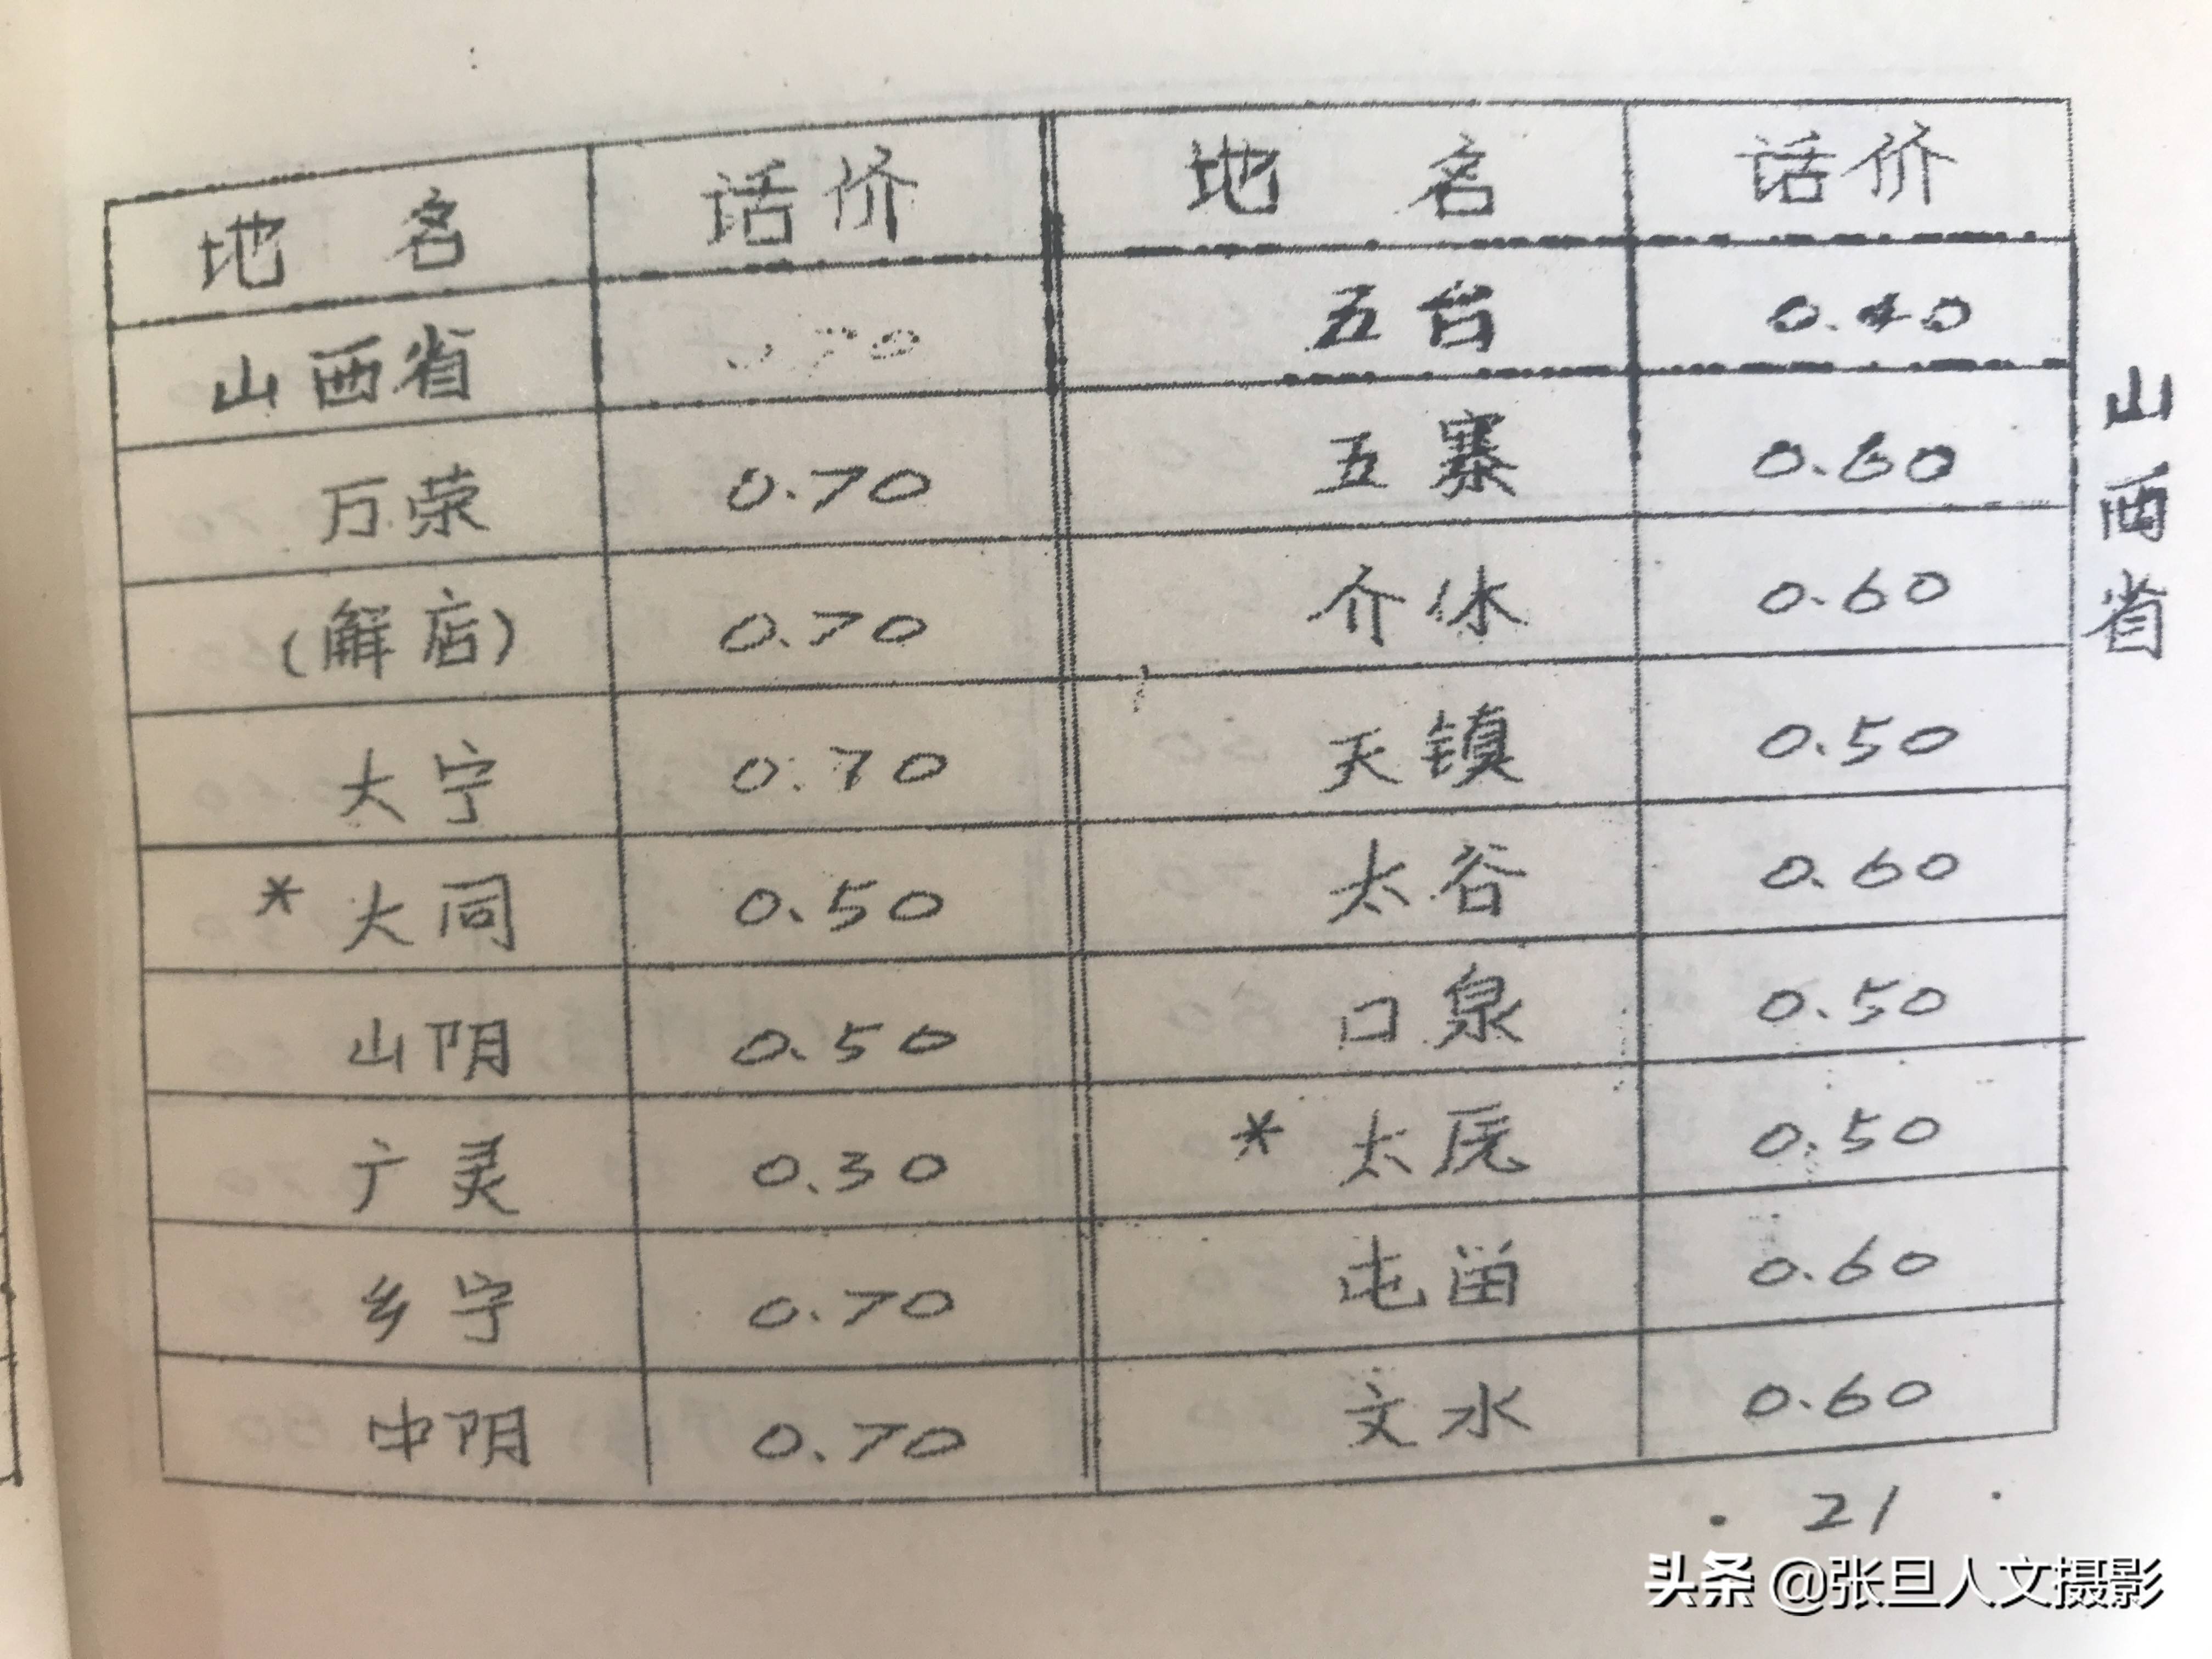 地 名 话价 地 名 话价
山西省 0.70 五台 0.40
万荣 0.70 五寨 0.60
(觧店) 0.70 介休 0.60
大宁 0.70 天镇 0.50
* 大同 0.50 太谷 0.60
山阴 0.50 口泉 0.50
广灵 0.30 * 太原 0.50
乡宁 0.70 屯留 0.60
中阴 0.70 文水 0.60
山西省
· 21 ·
头条 @张旦人文摄影